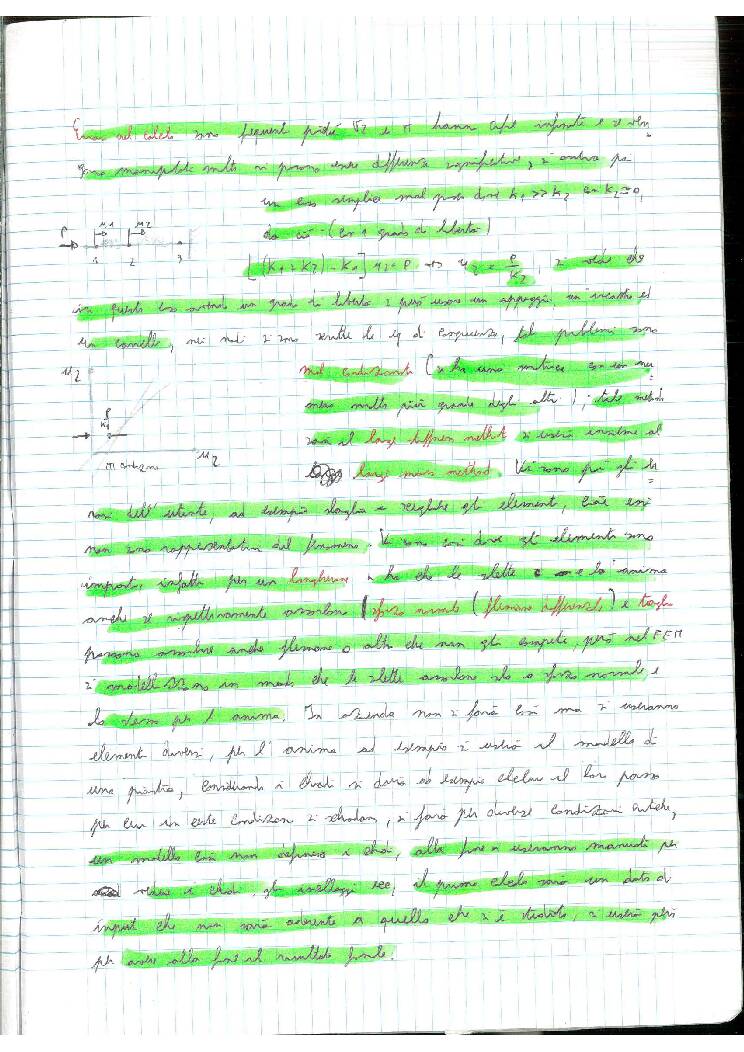 Errori nel calcolo sono frequenti poiché √2 e π hanno cifre infinite e se ven
gono manipolati molto vi possono essere differenze significative, si considera poi
un caso semplice mal posto dove K1 >> K2 con K2 ≃ 0,
da ciò (con 1 grado di libertà)
P u1 u2
1 2 3
[(K1 + K2) - K1] u2 = P → u2 = P/K2, si vede che
in questo caso avendo un grado di libertà si può usare un appoggio, un incastro ed
un carrello, nei nodi si sono scritte le eq di congruenza, tali problemi sono
u2
mal condizionati (si ha una matrice con un nu
P/K1
mero molto più grande degli altri), tale metodo
sarà il large stiffness method si userà insieme al
u2
large mass method. Vi sono poi gli er
rori dell'utente, ad esempio sbaglia a scegliere gli elementi, cioè essi
non sono rappresentativi del fenomeno. Vi sono casi dove gli elementi sono
importanti, infatti per un longherone si ha che le solette e l'anima
anche se rispettivamente assorbono sforzo normale (flessione differenziale) e taglio
possono assorbire anche flessione o altro che non gli compete, però nel FEM
si modellizzano in modo che le solette assorbono solo o sforzo normale e
lo stesso per l'anima. In azienda non si farà così ma si useranno
elementi diversi, per l'anima ad esempio si userà il modello di
una piastra, considerando i chiodi si dovrà ad esempio calcolare il loro passo
per cui in certe condizioni si schiodano, si farà per diverse condizioni critiche,
un modello così non definisce i chiodi, alla fine si useranno manuali per
vedere i chiodi, gli incollaggi ecc, il primo calcolo sarà un dato di
input che non sarà aderente a quello che si è studiato, si userà però
per avere alla fine il risultato finale.